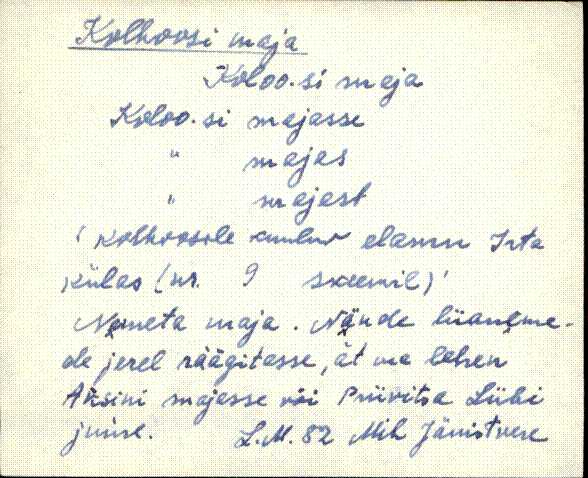 Kolhoosi maja
Koloo.si maja
Koloo.si majasse
" majas
" majast
' Kolhoosile kuuluv elamu Irta
külas (nr. 9 skeemil)'
Nemeta maja. Nände liianeme-
de jerel räägitasse, ät ma lehen
Aksini majasse või Priivitsa Liibi
juure. L.M. 82 Mih Jänistvere